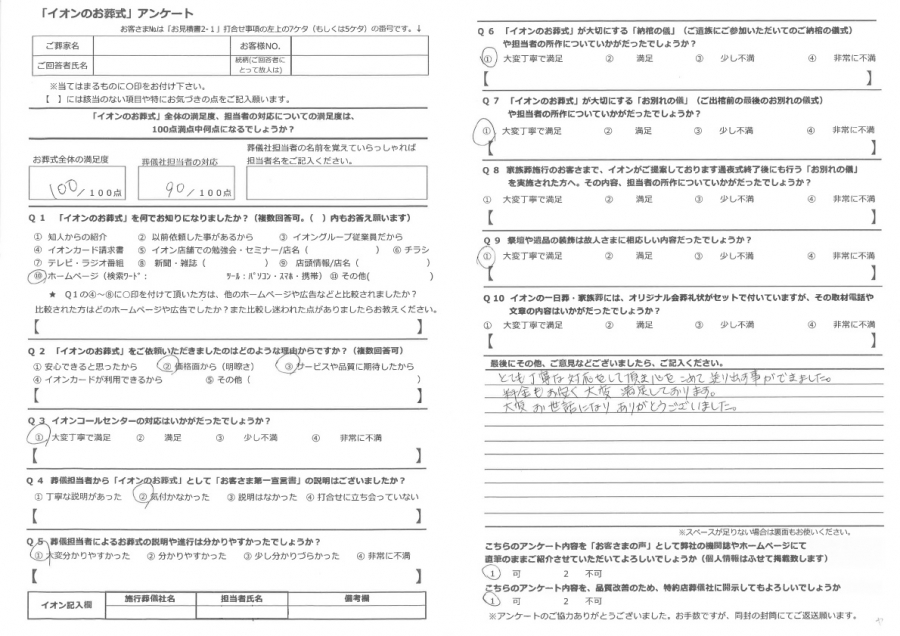 「イオンのお葬式」アンケート
お客さま№は「お見積書2-1」打合せ事項の左上の7ケタ（もしくは5ケタ）の番号です。↓
ご葬家名
お客様NO.
ご回答者氏名
続柄(ご回答者にとって故人は)
※当てはまるものに〇印をお付け下さい。
【 】には該当のない項目や特にお気づきの点をご記入願います。
「イオンのお葬式」全体の満足度、担当者の対応についての満足度は、
100点満点中何点になるでしょうか？
お葬式全体の満足度
葬儀社担当者の対応
葬儀社担当者の名前を覚えていらっしゃれば
担当者名をご記入ください。
100/100点
90/100点
Q 1 「イオンのお葬式」を何でお知りになりましたか？（複数回答可。（ ）内もお答え願います）
① 知人からの紹介 ② 以前依頼した事があるから ③ イオングループ従業員だから
④ イオンカード請求書 ⑤ イオン店舗での勉強会・セミナー/店名（ ） ⑥ チラシ
⑦ テレビ・ラジオ番組 ⑧ 新聞・雑誌（ ） ⑨ 店頭情報/店名（ ）
⑩ ホームページ（検索ﾜｰﾄﾞ： ﾂｰﾙ：ﾊﾟｿｺﾝ・ｽﾏﾎ・携帯） ⑪ その他( )
★ Q1の④～⑧に〇印を付けて頂いた方は、他のホームページや広告などと比較されましたか？
比較された方はどのホームページや広告でしたか？また比較し迷われた点がありましたらお教えください。
【 】
Q 2 「イオンのお葬式」をご依頼いただきましたのはどのような理由からですか？（複数回答可）
① 安心できると思ったから ② 価格面から（明瞭さ） ③ サービスや品質に期待したから
④ イオンカードが利用できるから ⑤ その他（ ）
【 】
Q 3 イオンコールセンターの対応はいかがだったでしょうか？
① 大変丁寧で満足 ② 満足 ③ 少し不満 ④ 非常に不満
【 】
Q 4 葬儀担当者から「イオンのお葬式」として「お客さま第一宣言書」の説明はございましたか？
① 丁寧な説明があった ② 気付かなかった ③ 説明はなかった ④ 打合せに立ち会っていない
【 】
Q 5 葬儀担当者によるお葬式の説明や進行は分かりやすかったでしょうか？
① 大変分かりやすかった ② 分かりやすかった ③ 少し分かりづらかった ④ 非常に不満
【 】
イオン記入欄
施行葬儀社名
担当者氏名
備考欄
Q 6 「イオンのお葬式」が大切にする「納棺の儀」（ご遺族にご参加いただいてのご納棺の儀式）
や担当者の所作についていかがだったでしょうか？
① 大変丁寧で満足 ② 満足 ③ 少し不満 ④ 非常に不満
【 】
Q 7 「イオンのお葬式」が大切にする「お別れの儀」（ご出棺前の最後のお別れの儀式）
や担当者の所作についていかがだったでしょうか？
① 大変丁寧で満足 ② 満足 ③ 少し不満 ④ 非常に不満
【 】
Q 8 家族葬施行のお客さまで、イオンがご提案しております通夜式終了後にも行う「お別れの儀」
を実施された方へ。その内容、担当者の所作についていかがだったでしょうか？
① 大変丁寧で満足 ② 満足 ③ 少し不満 ④ 非常に不満
【 】
Q 9 祭壇や遺品の装飾は故人さまに相応しい内容だったでしょうか？
① 大変丁寧で満足 ② 満足 ③ 少し不満 ④ 非常に不満
【 】
Q 10 イオンの一日葬・家族葬には、オリジナル会葬礼状がセットで付いていますが、その取材電話や
文章の内容はいかがだったでしょうか？
① 大変丁寧で満足 ② 満足 ③ 少し不満 ④ 非常に不満
【 】
最後にその他、ご意見などございましたら、ご記入ください。
とても丁寧な対応をして頂き心をこめて送り出す事ができました。
料金もお安く大変満足しております。
大変お世話になりありがとうございました。
※スペースが足りない場合は裏面もお使いください。
こちらのアンケート内容を「お客さまの声」として弊社の機関誌やホームページにて
直筆のままご紹介させていただいてよろしいでしょうか（個人情報はふせて掲載致します）
1 可 2 不可
こちらのアンケート内容を、品質改善のため、特約店葬儀社に開示してもよろしいでしょうか
1 可 2 不可
※アンケートのご協力ありがとうございました。お手数ですが、同封の封筒にてご返送願います。